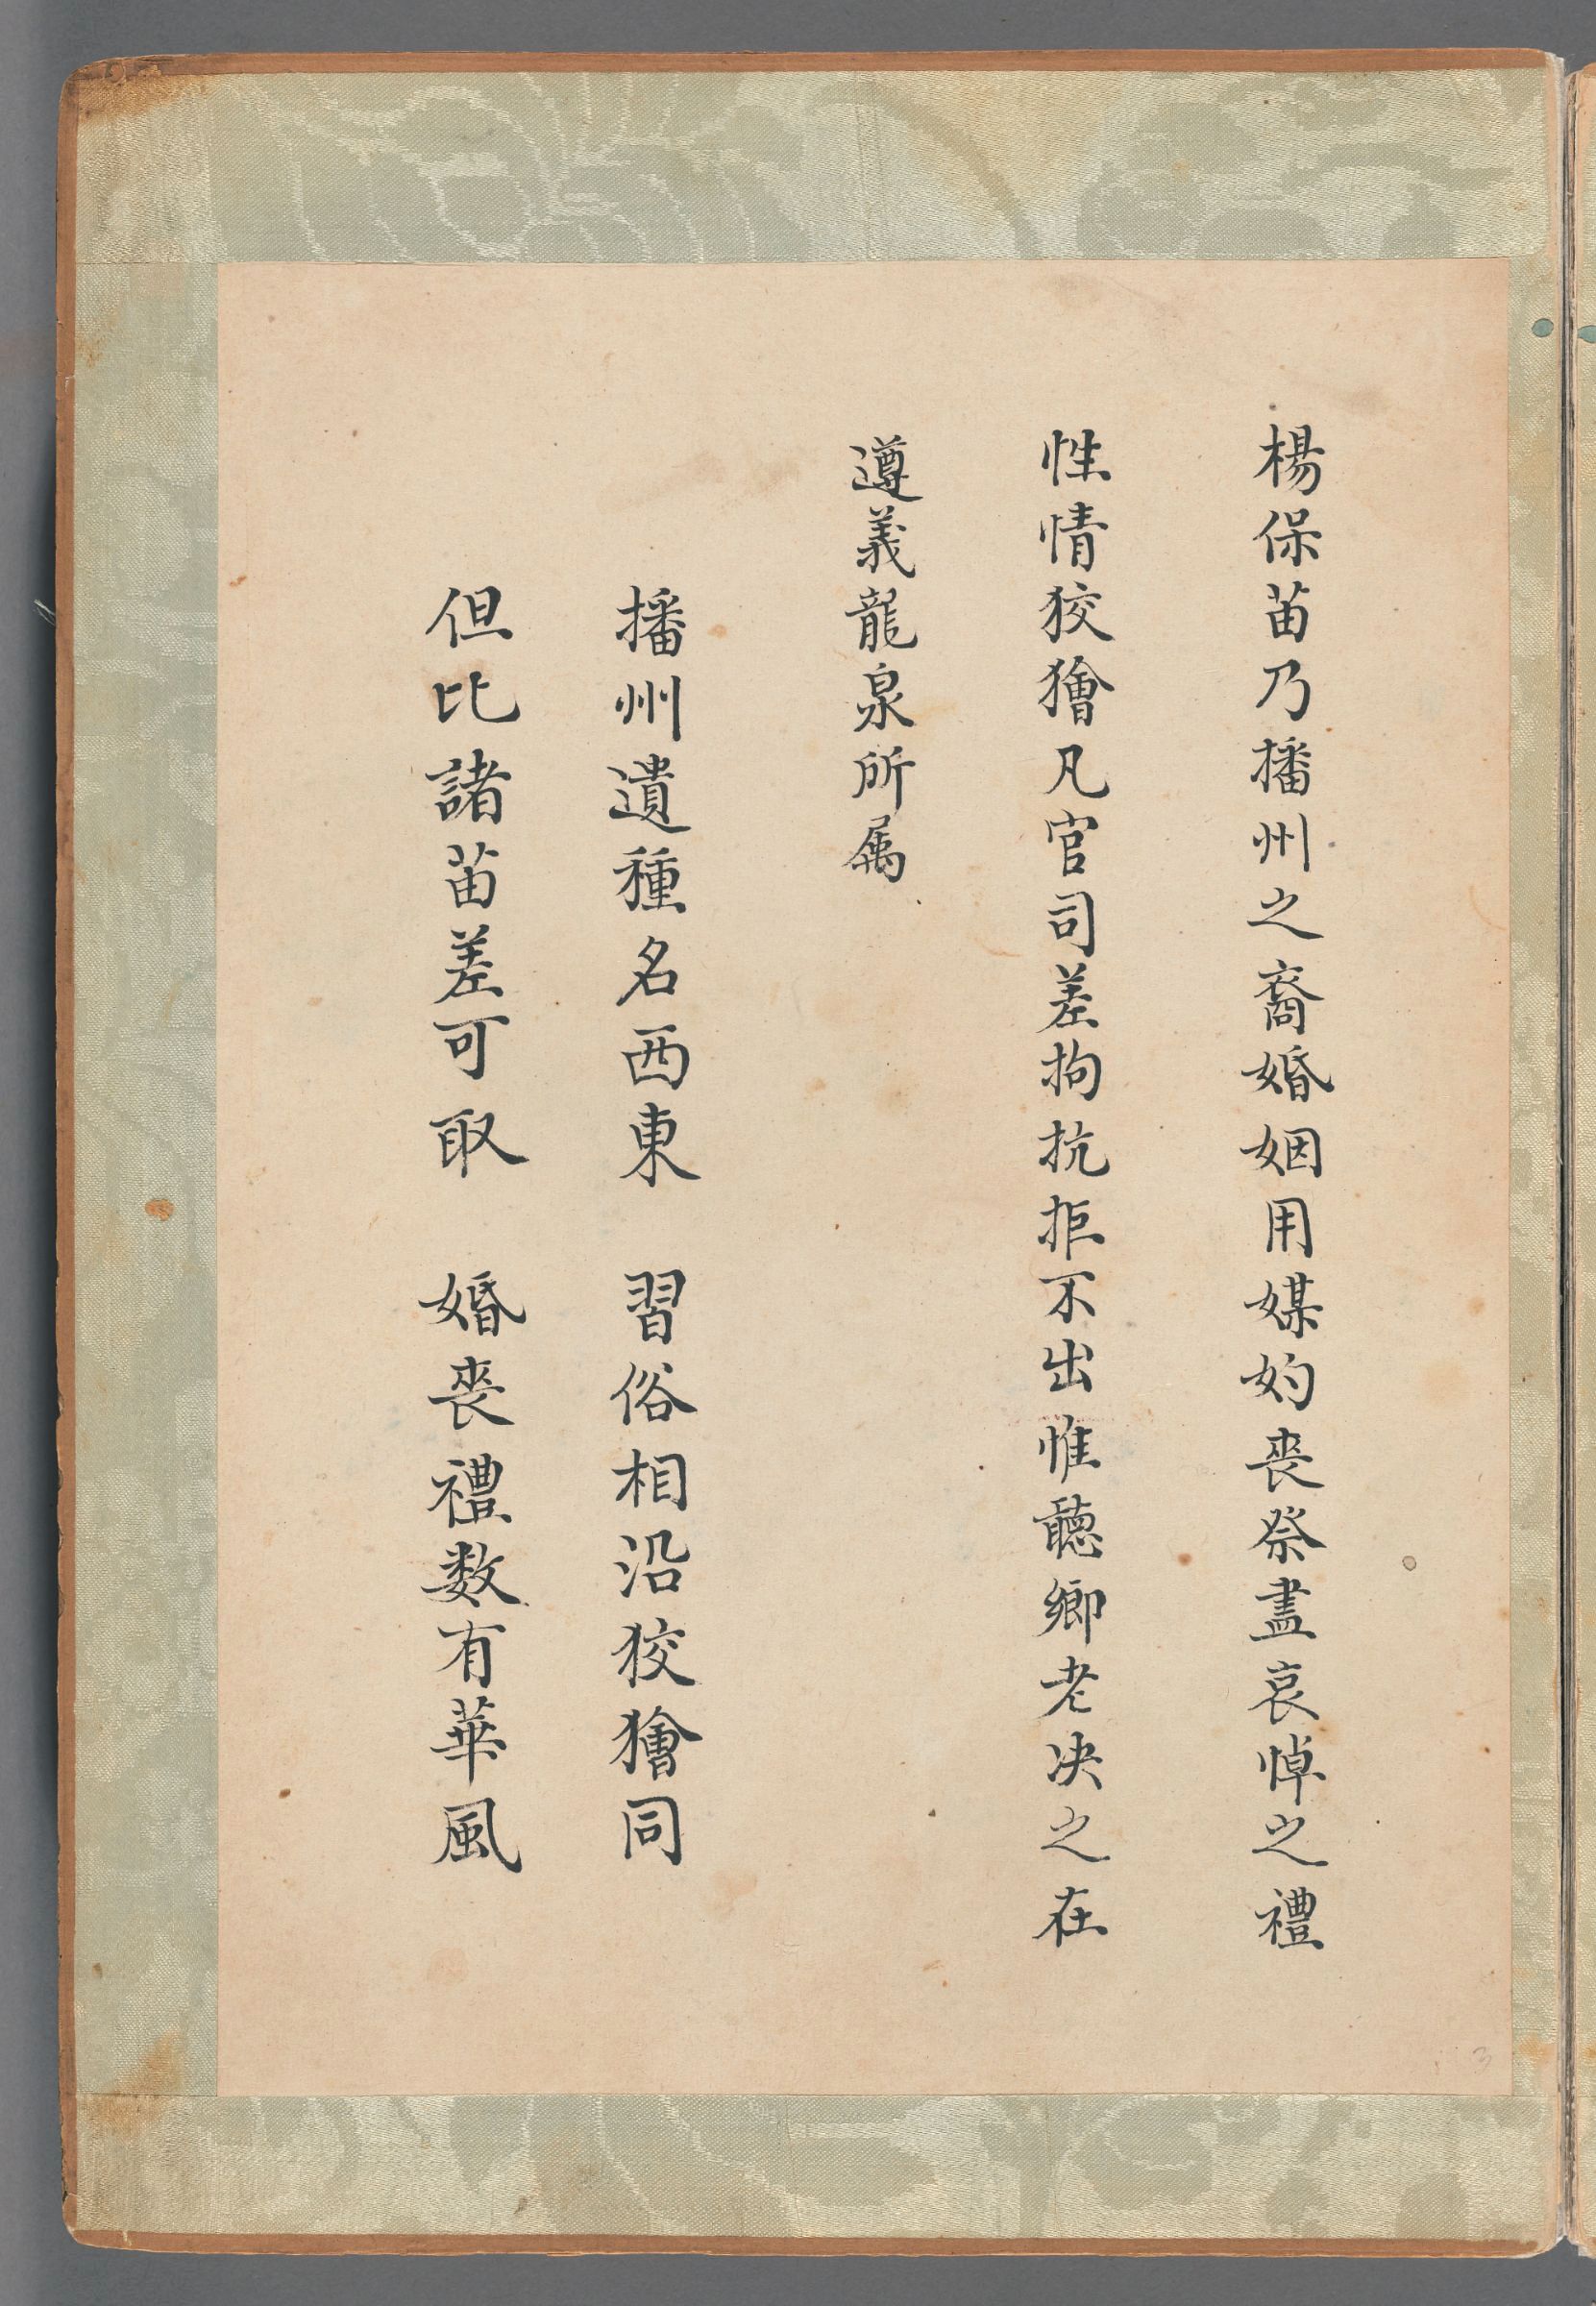 楊保苗乃播州之裔婚姻用媒妁喪祭盡哀悼之禮
性情狡獪凡官司差拘抗拒不出惟聽鄉老决之在
遵義龍泉所属
播州遺種名西東 習俗相沿狡獪同
但比諸苗差可取 婚喪禮数有華風
3